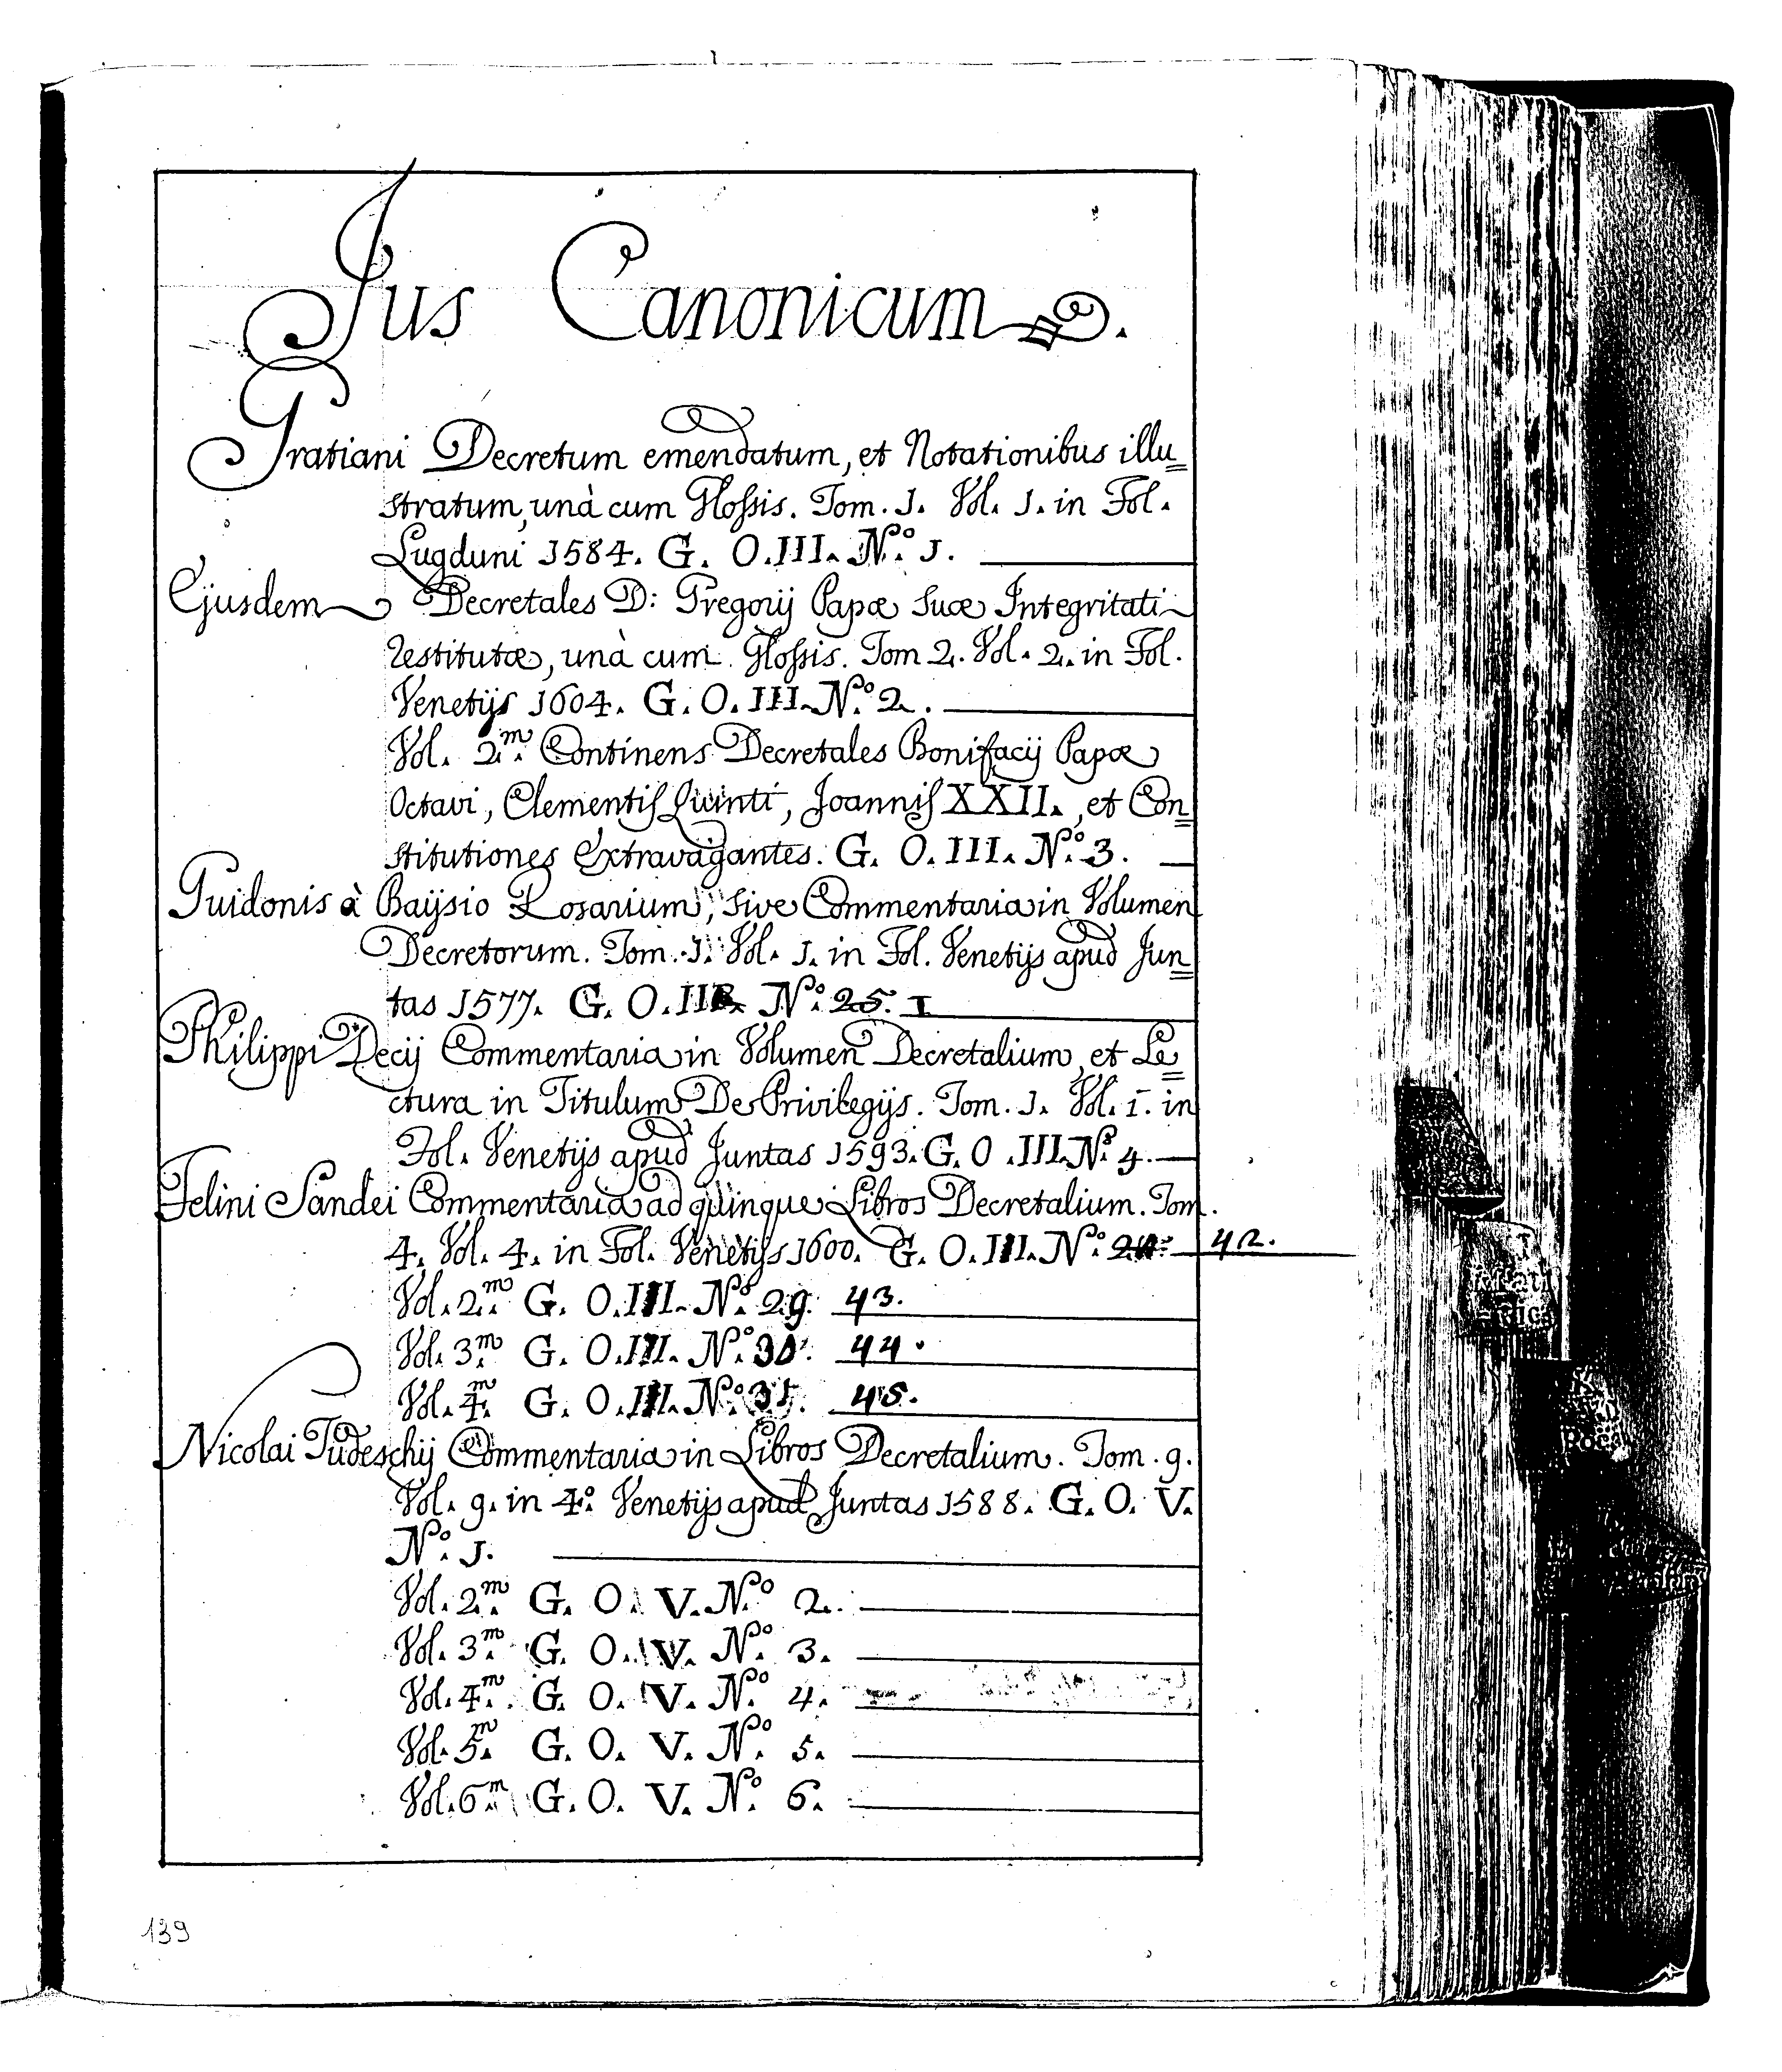 Jus Canonicum.
Gratiani Decretum emendatum, et Notationibus illu=
stratum, unà cum Glossis. Tom. 1. Vol. 1. in Fol.
Lugduni 1584. G. O. III. N.º 1.
Ejusdem Decretales D: Gregorij Papæ suæ Integritati
restitutæ, unà cum Glossis. Tom 2. Vol. 2. in Fol.
Venetijs 1604. G. O. III. N.º 2.
Vol. 2.m Continens Decretales Bonifacij Papæ
Octavi, Clementis Quinti, Joannis XXII., et Con=
stitutiones Extravagantes. G. O. III. N.º 3.
Guidonis à Baijsio Rosarium, sive Commentaria in Volumen
Decretorum. Tom. 1. Vol. 1. in Fol. Venetijs apud Jun=
tas 1577. G. O. N.º 25. I
Philippi Decij Commentaria in Volumen Decretalium, et Le=
ctura in Titulum De Privilegijs. Tom. 1. Vol. 1. in
Fol. Venetijs apud Juntas 1593. G. O. III. N.º 4.
Felini Sandei Commentaria ad quinque Libros Decretalium. Tom.
4. Vol. 4. in Fol. Venetijs 1600. G. O. III. N.º 42.
Vol. 2.m G. O. III. N.º 29. 43.
Vol. 3.m G. O. III. N.º 30. 44.
Vol. 4.m G. O. III. N.º 31. 45.
Nicolai Tudeschij Commentaria in Libros Decretalium. Tom. 9.
Vol. 9. in 4.º Venetijs apud Juntas 1588. G. O. V.
N.º 1.
Vol. 2.m G. O. V. N.º 2.
Vol. 3.m G. O. V. N.º 3.
Vol. 4.m G. O. V. N.º 4.
Vol. 5.m G. O. V. N.º 5.
Vol. 6.m G. O. V. N.º 6.
139